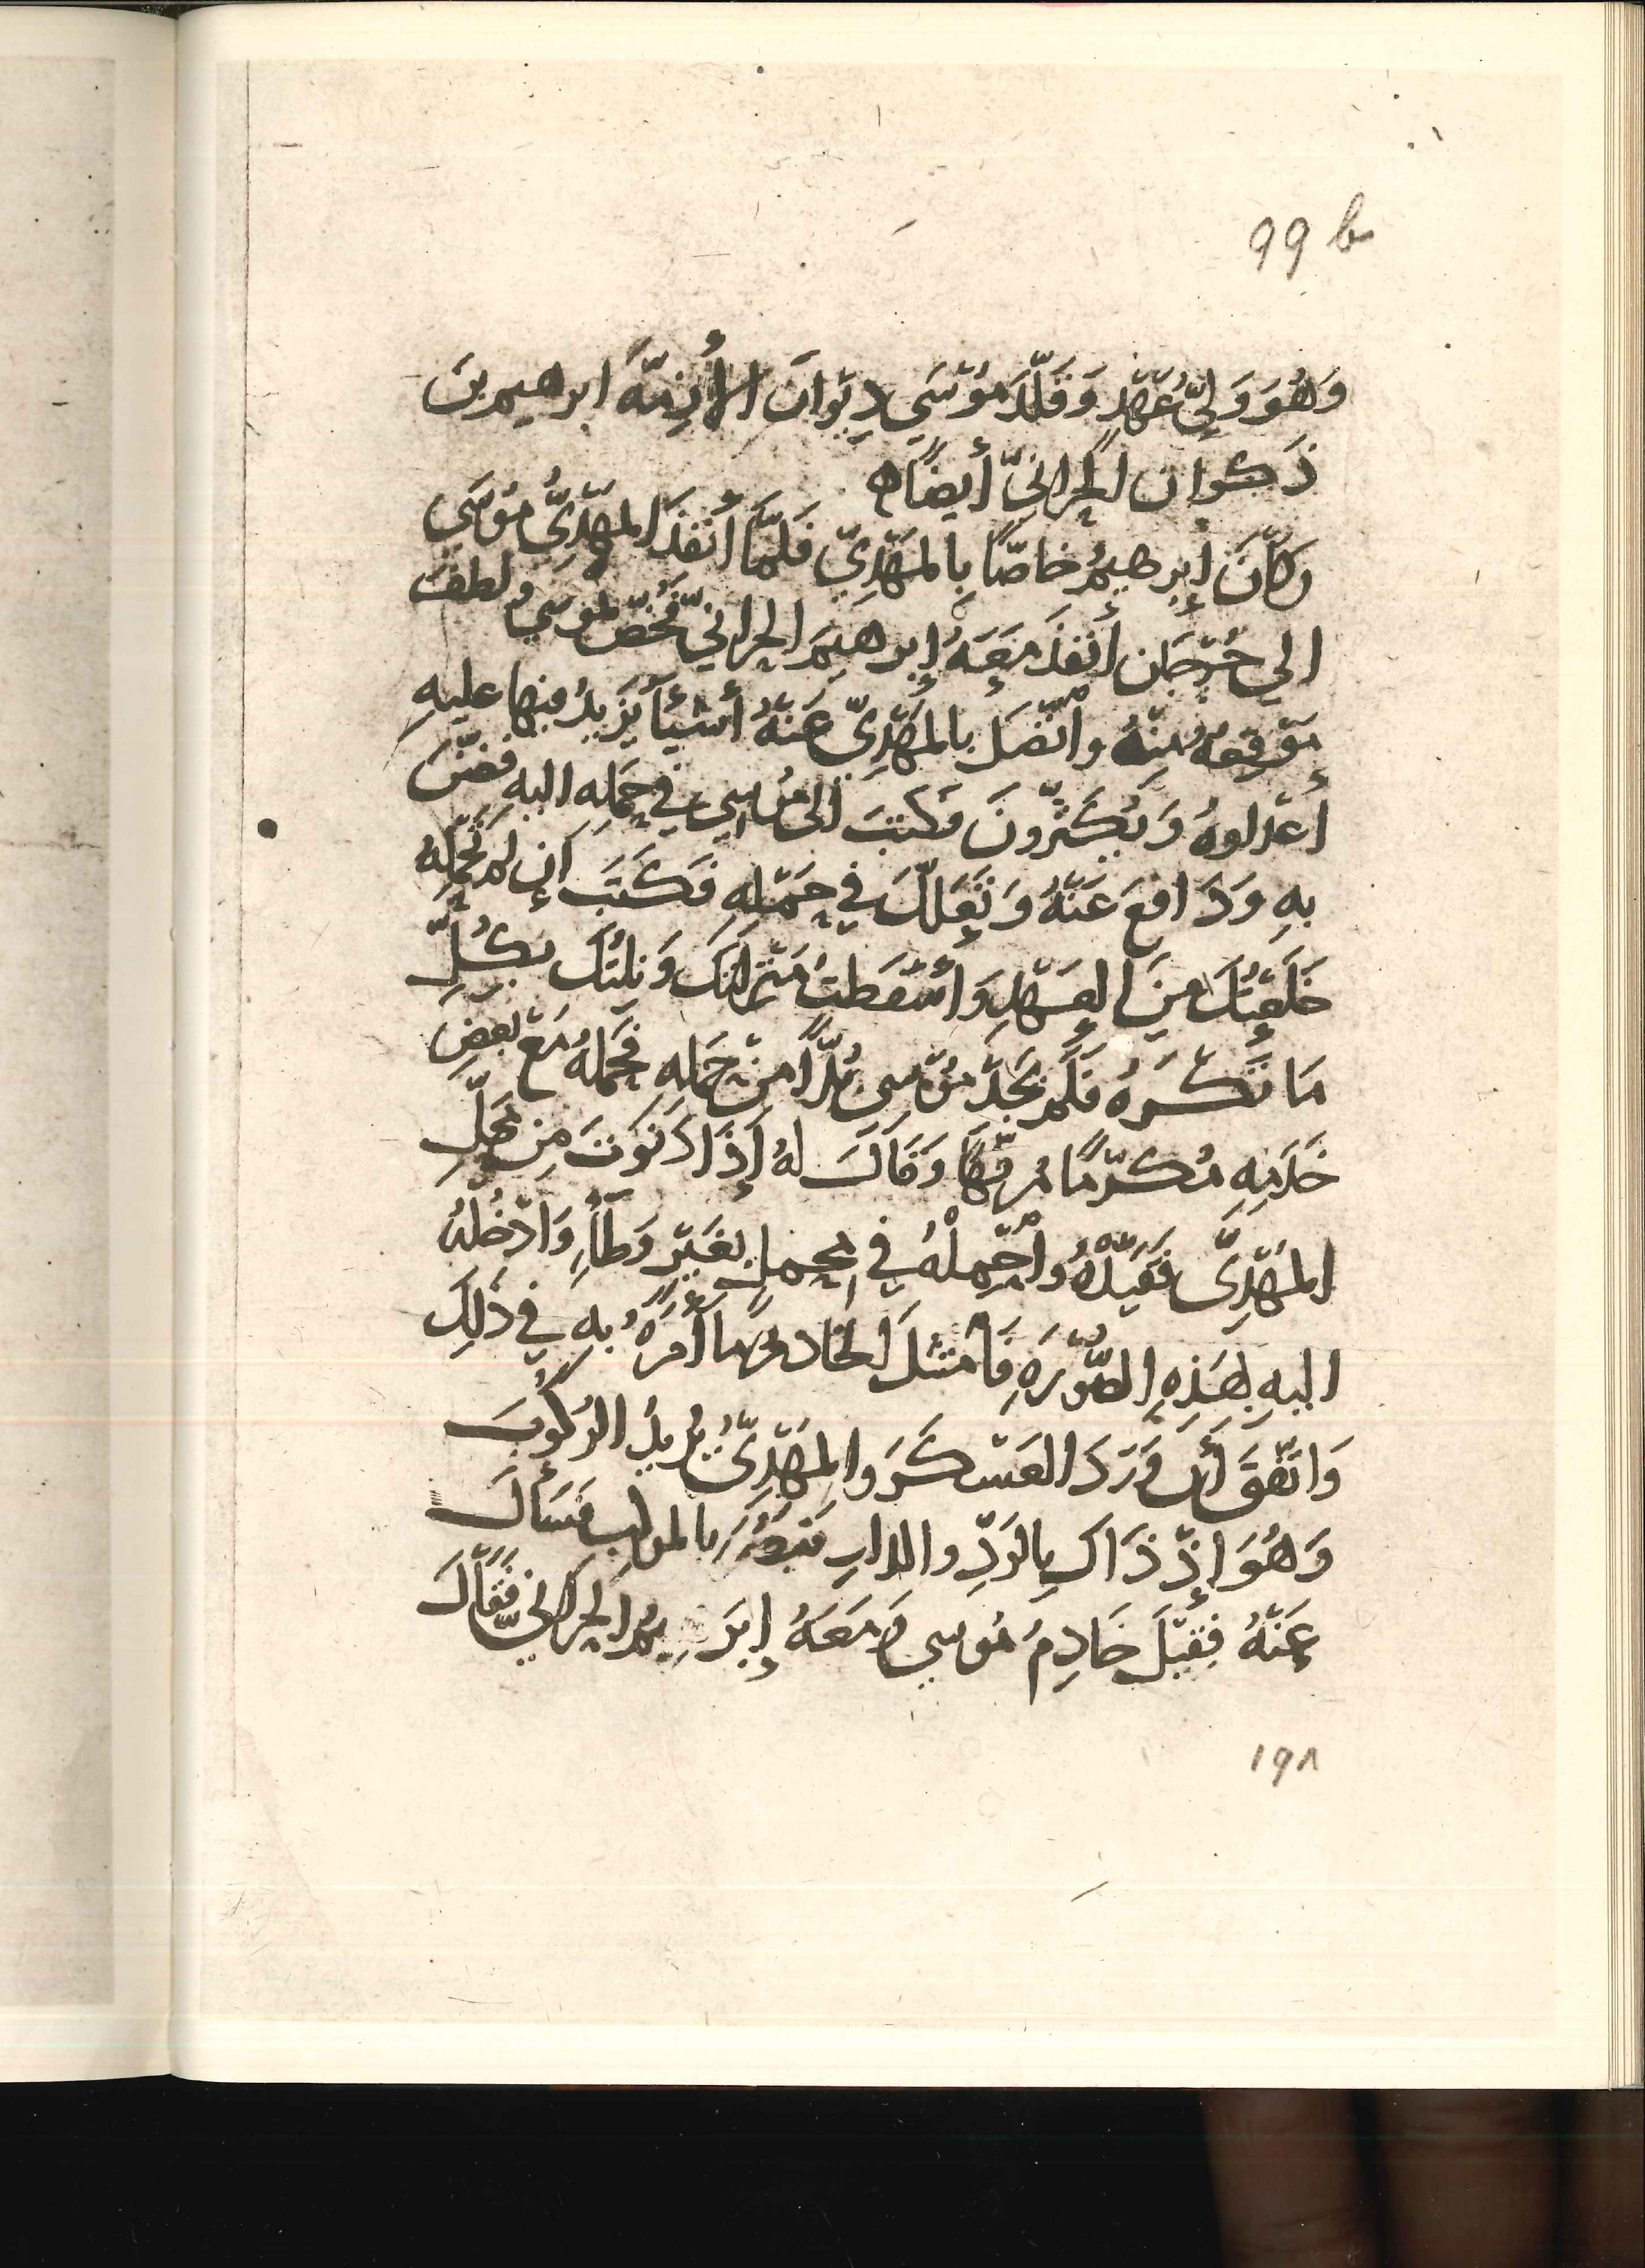 99 b
وَهُوَ وَلِيُّ عَهْدٍ وَقَلَّدَ مُوْسَي دِيْوانَ الأَزِمَّةَ ابرهيمر بنَ
ذَكوان الحرانيّ أيضًا ه
وكانَ إبرهيمُ خاصًّا بِالمَهْدِيّ فَلَمَّا أَنْفَذَ المَهْدِيُّ مُوْسَى
الي جُرْجان أنفذَ مَعَهُ إبرهيمَ الحرانيّ فَخُصَّ بموسي ولطفَ
مَوْقِعهُ مِنْهُ واتّصَلَ بالمَهْدِيّ عَنْهُ أشيأ يَزِيدُ فيها عليهِ
أعْداوهُ وَيُكَثِّرونَ فكتبَ الى مُوسي في حَمْلِه اليهِ فضنّ
بهِ وَدَافعَ عَنْهُ وَتَعَلّلَ في حَمْلِهِ فَكَتَبَ إن لم تَحْمِلْهُ
خَلَعْتُكَ مِنَ العَهْدِ وَأسْقَطتُ مَنْزِلتكَ وَنِلتُكَ بِكُلِّ
مَا تَكْرَهُ فَلَم يَجِدْ مُوْسى بُدًّا مِنْ حَمْلِهِ فَحَمَلهُ مَعَ بعضِ
خَدَمِهِ مُكرَّمًا مُرفَّهًا وَقَالَ لهُ إذَا دَنَوْتَ مِن مَحَلِّ
المَهْدِيّ فَقَيِّدْهُ واحْمِلْهُ في مَحمِلٍ بغَيْرِ وَطَأٍ وَادْخِلهُ
اليهِ بهَذِهِ الصُّوْرَهِ فَامتثلَ الخادمُ ما أمَرَهُ بهِ في ذلِكَ
وَاتّفَقَ أنْ وَرَدَ العَسْكَرَ والمَهْدِيُّ يُريدُ الرُكُوبَ
وَهُوَ إذْ ذَاكَ بِالرَدِّ والدارِ بالموكبِ فسَألَ
عَنْهُ فقيْلَ خَادِمُ مُوسي وَمَعَهُ إبرَهِيمُ الحراني فقَالَ
١٩٨